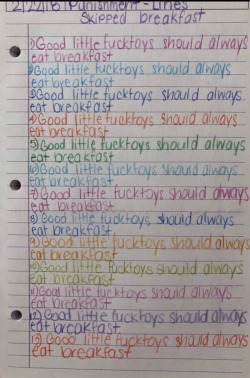 12/22/16 Punishment - Lines
Skipped breakfast
1) Good little fucktoys should always
eat breakfast
2) Good little fucktoys should always
eat breakfast
3) Good little fucktoys should always
eat breakfast
4) Good little fucktoys should always
eat breakfast
5) Good little fucktoys should always
eat breakfast
6) Good little fucktoys should always
eat breakfast
7) Good little fucktoys should always
eat breakfast
8) Good little fucktoys should always
eat breakfast
9) Good little fucktoys should always
eat breakfast
10) Good little fucktoys should always
eat breakfast
11) Good little fucktoys should always
eat breakfast
12) Good little fucktoys should always
eat breakfast
13) Good little fucktoys should always
eat breakfast